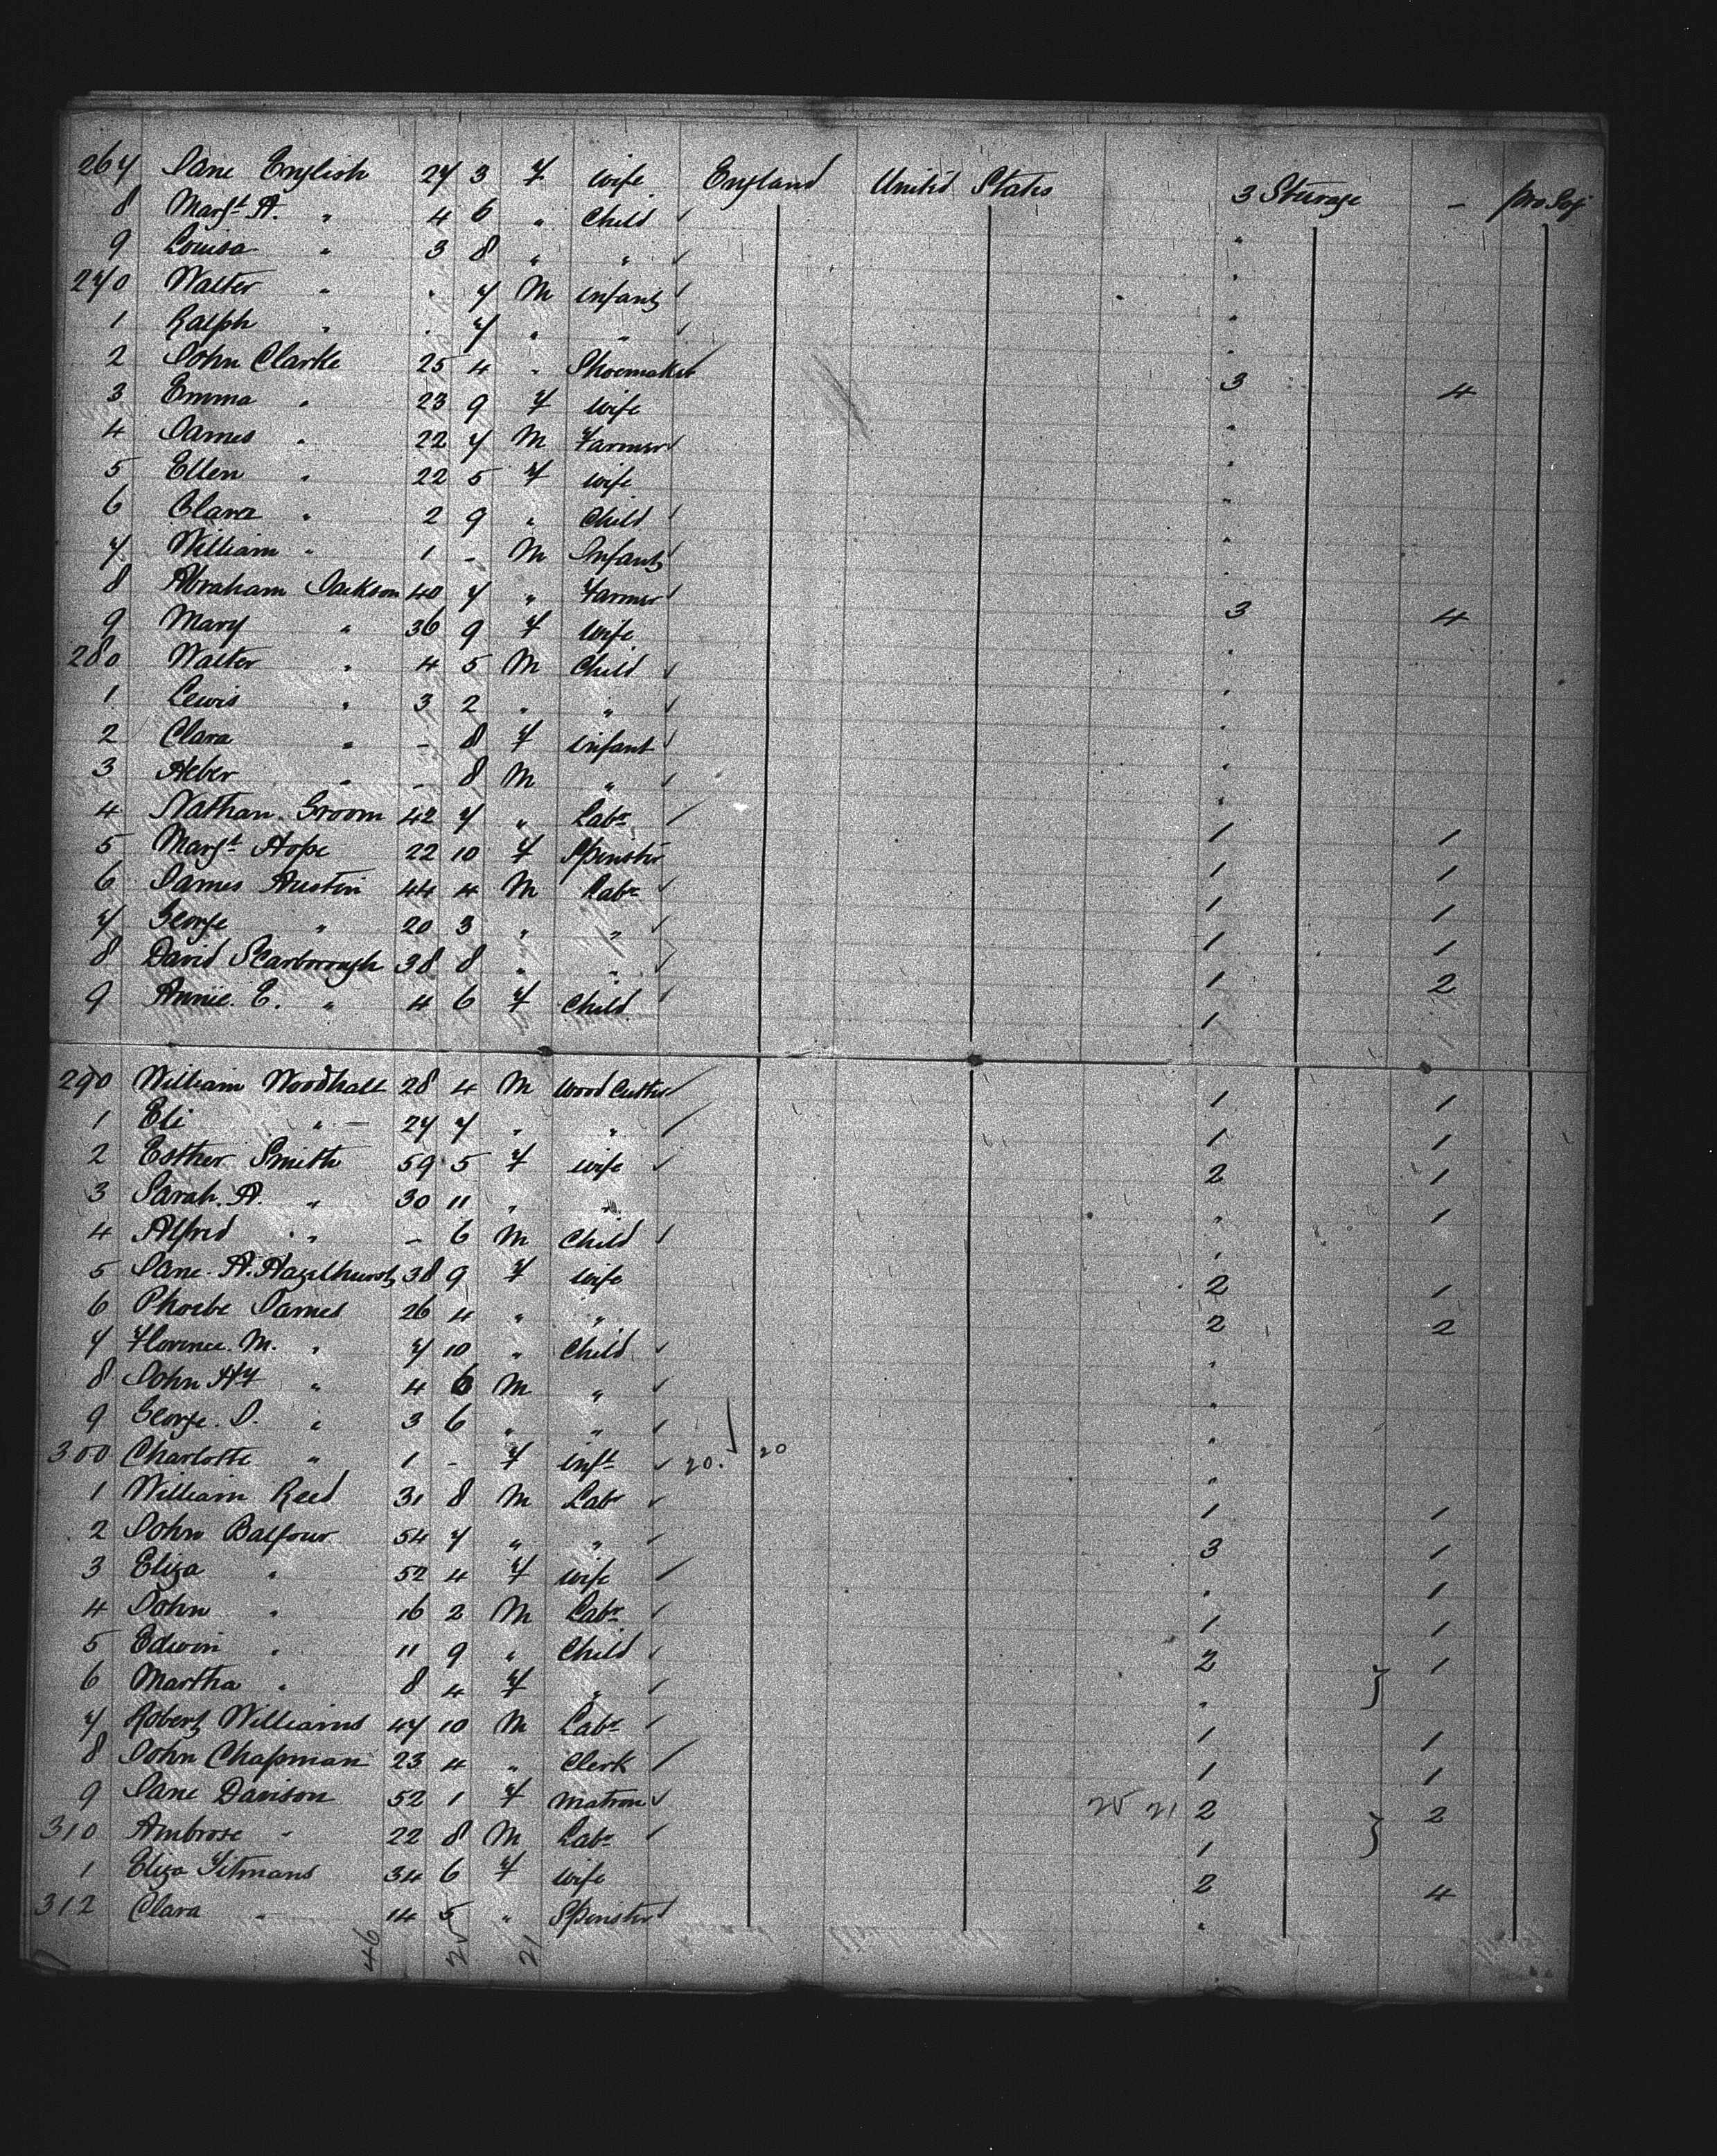 267 Jane English 27 3 F wife England United States 3 Steerage - pro Soj
8 Margt A. " 4 6 " Child ✓ "
9 Louisa " 3 8 " " ✓ "
270 Walter " . 7 M infant ✓ "
1 Ralph " . 7 " " ✓ "
2 John Clarke 25 4 " Shoemaker ✓ 3 4
3 Emma " 23 9 F wife "
4 James " 22 7 M Farmer ✓ "
5 Ellen " 22 5 F wife "
6 Clara " 2 9 " Child ✓ "
7 William " 1 - M Infant ✓ "
8 Abraham Jackson 40 7 " Farmer ✓ 3 4
9 Mary " 36 9 F wife "
280 Walter " 4 5 M Child ✓ "
1 Lewis " 3 2 " " ✓ "
2 Clara " - 8 F infant ✓ "
3 Heber " - 8 M " ✓ "
4 Nathan Groom 42 7 " Labr ✓ 1 1
5 Margt Hope 22 10 F Spinster 1 1
6 James Austin 44 4 M Labr ✓ 1 1
7 George " 20 3 " " ✓ 1 1
8 David Scarborough 38 8 " " ✓ 1 2
9 Annie E. " 4 6 F Child ✓ 1
290 William Woodhall 28 4 M Wood Cutter ✓ 1 1
1 Eli " 27 7 " " ✓ 1 1
2 Esther Smith 59 5 F wife ✓ 2 1
3 Sarah A. " 30 11 " " " 1
4 Alfred " - 6 M Child ✓ "
5 Jane A. Hazelhurst 38 9 F wife 2 1
6 Phoebe James 26 4 " " 2 2
7 Florence M. " 7 10 " Child ✓ "
8 John Hy " 4 6 M " ✓ "
9 George J. " 3 6 " " ✓ "
300 Charlotte " 1 - F inft ✓ 20. 20 "
1 William Reed 31 8 M Labr ✓ 1 1
2 John Balfour 54 7 " " ✓ 3 1
3 Eliza " 52 4 F wife ✓ " 1
4 John " 16 2 M Labr ✓ 1 1
5 Edwin " 11 9 " Child ✓ 2 1
6 Martha " 8 4 F " ✓ "
7 Robert Williams 47 10 M Labr ✓ 1 1
8 John Chapman 23 4 " Clerk ✓ 1 1
9 Jane Davison 52 1 F Matron ✓ 25 21 2 2
310 Ambrose " 22 8 M Labr ✓ 1
1 Eliza Yitmans 34 6 F wife 2 4
312 Clara " 14 5 " Spinster ✓ "
46 25 21